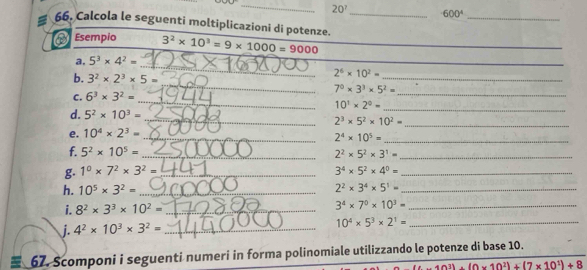 20¹ ________ 600⁴ ________
66. Calcola le seguenti moltiplicazioni di potenze.
Esempio 3² × 10³ = 9 × 1000 = 9000
a. 5³ × 4² =
b. 3² × 2³ × 5 = 360
c. 6³ × 3² = 1944
d. 5² × 10³ = 25000
e. 10⁴ × 2³ = 80000
f. 5² × 10⁵ = 2500000
g. 1⁰ × 7² × 3² = 441
h. 10⁵ × 3² = 900000
i. 8² × 3³ × 10² = 172800
j. 4² × 10³ × 3² = 1440000
2⁶ × 10² =
7⁰ × 3³ × 5² =
10¹ × 2⁰ =
2³ × 5² × 10² =
2⁴ × 10⁵ =
2² × 5² × 3¹ =
3⁴ × 5² × 4⁰ =
2² × 3⁴ × 5¹ =
3⁴ × 7⁰ × 10³ =
10⁴ × 5³ × 2¹ =
67. Scomponi i seguenti numeri in forma polinomiale utilizzando le potenze di base 10.
10³) + (0 × 10²) + (7 × 10¹) + 8